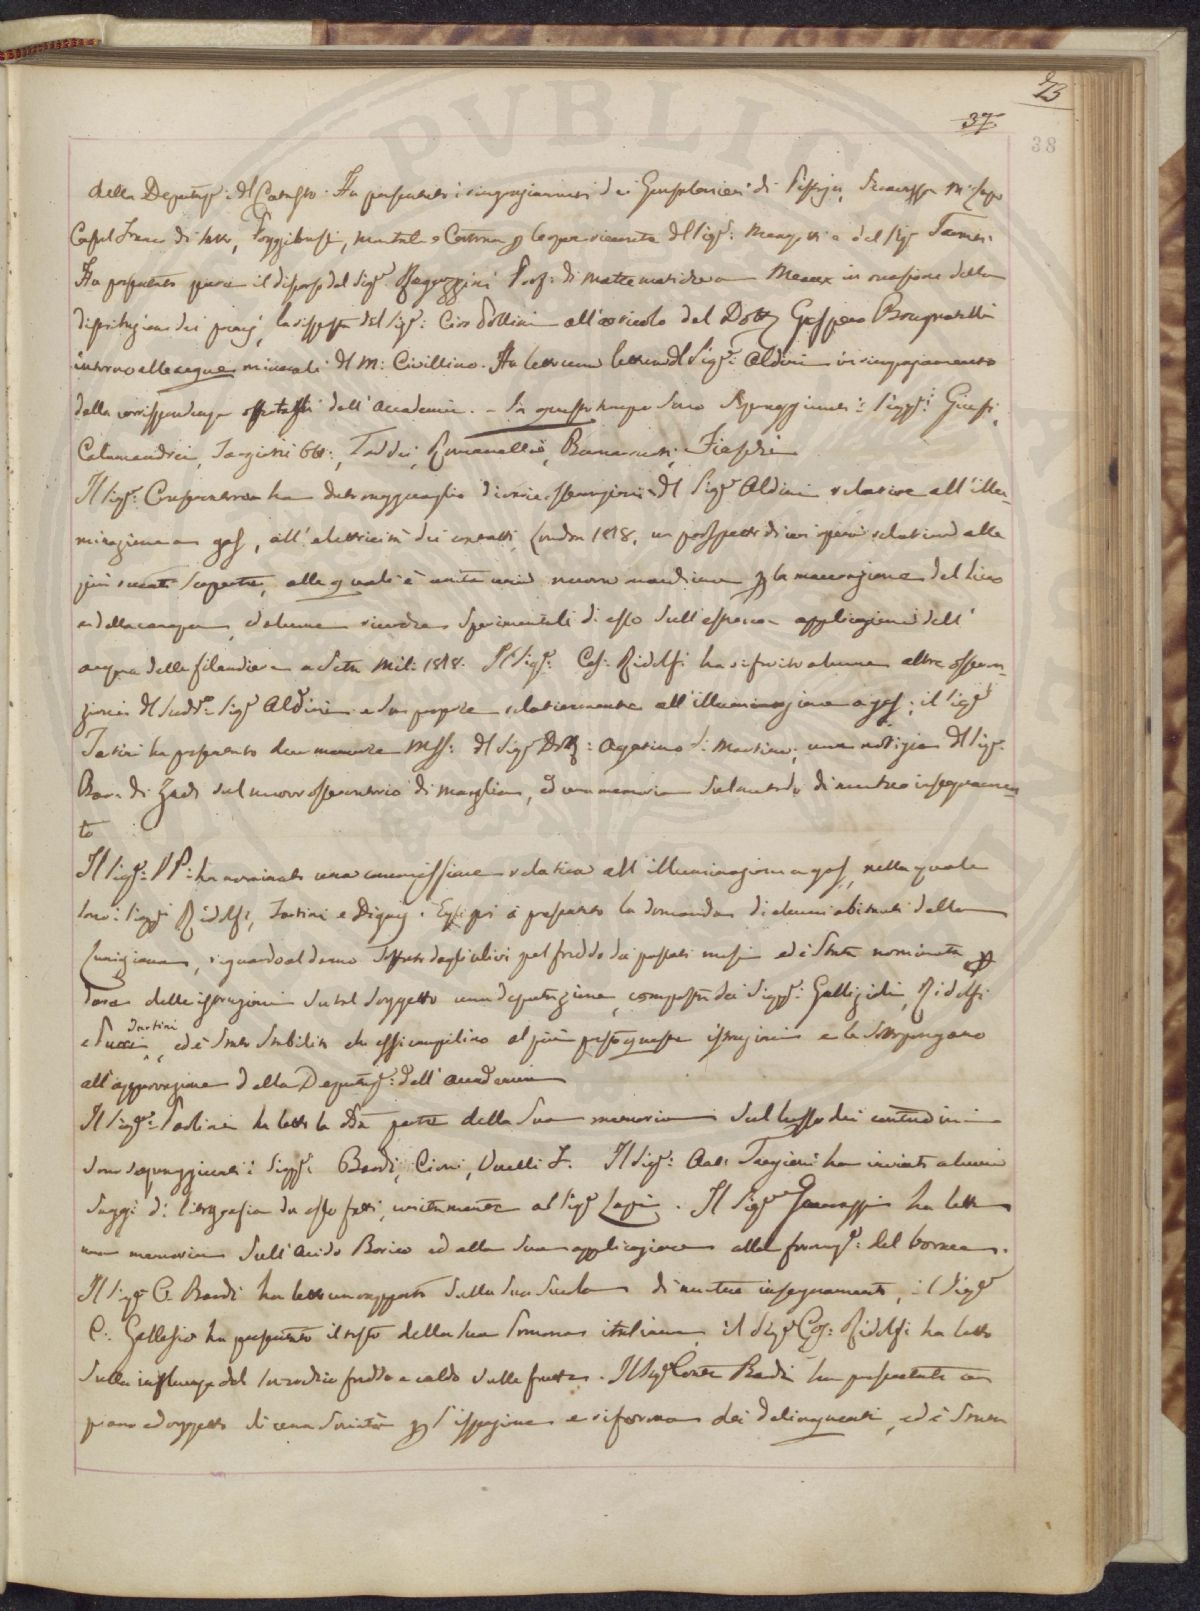 23
37
38
della Deputaz.e del Catasto. Ha presentato i ringraziamenti dei Gonfalonieri di
Castel Franco di sotto, Poggibonsi, Montale e per le opere ricevute del Sig.r: e del Sig.r
Ha presentato pure il discorso del Sig.r Prof: di Mattematiche a in occasione della
distribuzione dei premj, la risposta del Sig.r: Ciro Pollini all'articolo del Dott. Gaspero Brugnatelli
intorno alle acque minerali di M: Civillino. Ha letto una lettera del Sig.r: Aldini in ringraziamento
della corrispondenza dell'Accademia. - In questo tempo sono sopraggiunti i Sigg.ri Giusti,
Calamandrei, Targioni Ott:, Taddei, Fiaschi
Il Sig.r: ha dato ragguaglio di varie osservazioni del Sig.r Aldini relative all'illu-
minazione a gas, all'elettricità dei contatti, London 1818, un prospetto di sei opere relative alle
più recenti scoperte, alle quali è unita una nuova macchina per la macerazione del lino
e della canapa, ed alcune ricerche sperimentali di esso sull'esterna applicazione dell'
acqua delle filande a seta Mil: 1818. Il Sig.r: Cos: Ridolfi ha riferito alcune altre osserva-
zioni del sudd.o Sig.r Aldini e sue proprie relativamente all'illuminazione a gas; il Sig.r
Tartini ha presentato due memorie MSS: del Sig.r Dott: Agostino di Martino; una notizia del Sig.r
Bar: di Zach sul nuovo osservatorio di Marglia, ed una memoria sul metodo di mutuo insegnamen-
to
Il Sig.r: VP: ha nominato una commissione relativa all'illuminazione a gas, nella quale
sono i Sigg.ri Ridolfi, Tartini e Digny. Egli poi à presentato la domanda di alcuni abitanti della
Lunigiana, riguardo al danno sofferto dagli ulivi pel freddo dei passati mesi ed è stata nominata per
dare delle istruzioni su tal soggetto una deputazione, composta dei Sigg.ri: Gallizioli, Ridolfi
Tartini
e , ed è stato stabilito che essi compilino al più presto queste istruzioni e le sottopongano
all'approvazione della Deputaz.e: dell'Accademia
Il Sig.r: Paolini ha letto la 2da parte della sua memoria sul lusso dei contadini
sono sopraggiunti i Sigg.ri Bardi, Cioni, Uccelli F. Il Sig.r: Ant: Targioni ha inviato alcuni
saggi di litografia da esso fatti, unitamente al Sig.r Lapi. Il Sig.r Gazzeri ha letto
una memoria sull'Acido Borico ed alla sua applicazione alla formaz.e: del borace.
Il Sig.r C. Bardi ha letto un rapporto sulla sua Scuola di mutuo insegnamento, il Sig.r
C. Gallesio ha presentato il resto della sua Pomona italiana, il Sig.r Cos: Ridolfi ha letto
sulla influenza del freddo e caldo sulle frutta. Il Sig.r Conte Bardi ha presentato un
piano ed oggetto di una Società per l'ispezione e riforma dei delinquenti, ed è stata